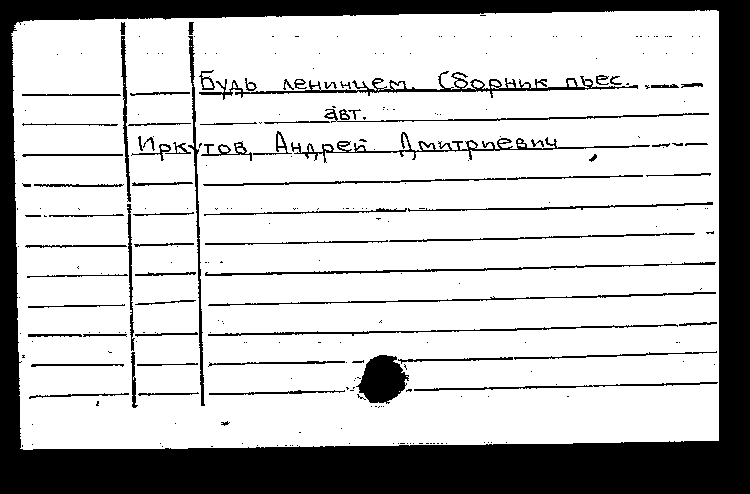 Будь ленинцем. Сборник пьес.
авт.
Иркутов, Андрей Дмитриевич